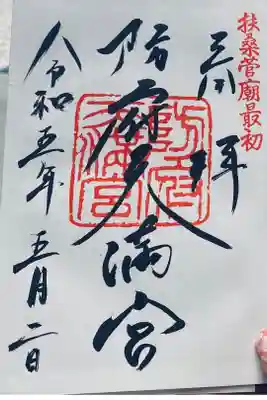 扶桑菅廟最初
拝
防府天満宮
令和五年 五月二日
防府天満宮